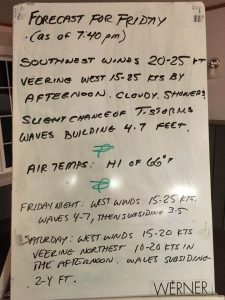 FORECAST FOR FRIDAY
(AS OF 7:40 PM)
SOUTHWEST WINDS 20-25 KT
VEERING WEST 15-25 KTS BY
AFTERNOON. CLOUDY. SHOWERS.
SLIGHT CHANCE OF T-STORMS
WAVES BUILDING 4-7 FEET.
AIR TEMPS: HI OF 66°F
FRIDAY NIGHT: WEST WINDS 15-25 KTS.
WAVES 4-7, THEN SUBSIDING 3-5
SATURDAY: WEST WINDS 15-20 KTS
VEERING NORTHEST 10-20 KTS IN
THE AFTERNOON. WAVES SUBSIDING
2-4 FT.
WERNER